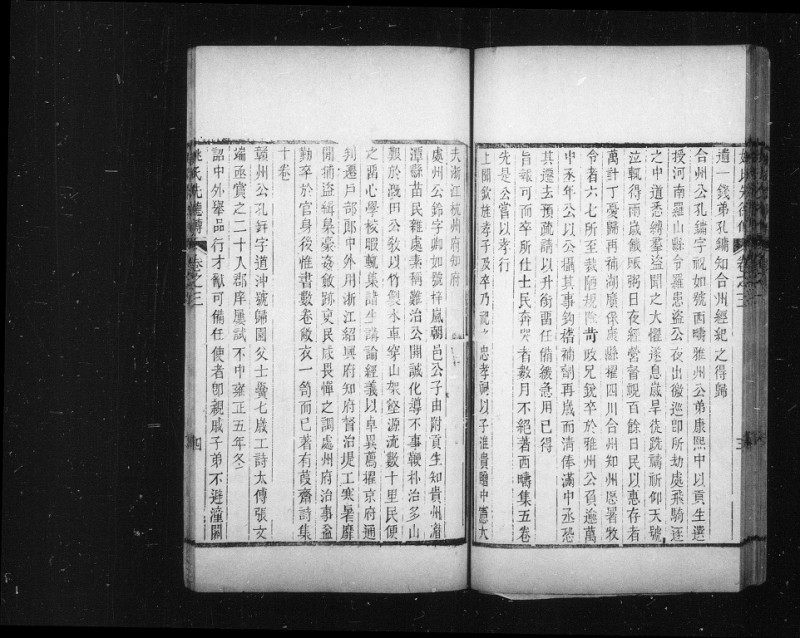 逋一錢弟孔鏞知台州經紀之得歸
台州公孔鏞字祝如號西疇雅州公弟康熙中以貢生選
授河南羅山縣令羅患盜公夜出徼巡卽所劫處飛騎逐
之中道悉縛羣盜聞之大懼遂息歲旱徒跣禱祈仰天號
泣輒得雨歲饑賑粥日夜經營督視百餘日民以惠存者
萬計丁憂歸再補湖廣保康縣擢四川台州知州歷署牧
令者六七所至裁陋規除苛政兄銳卒於雅州公負逾萬
中丞年公以公攝其事鉤稽補劑再歲而清俸滿中丞恐
其還去預疏請以升銜留任備緩急用已得
旨報可而卒所仕士民奔哭者數月不絕著西疇集五卷
先是公嘗以孝行
上聞欽旌孝子及卒乃祀 忠孝祠以子淮貴贈中憲大
夫浙江杭州府知府
處州公鈐字卿如號梓嵐朝邑公子由附貢生知貴州
潭縣苗民雜處素稱難治公開誠化導不事鞭朴治多山
艱於溉田公敎以竹製水車穿山架壑源流數十里民便
之留心學校暇輒集諸生講論經義以卓異薦擢京府通
判遷戶部郎中外用浙江紹興府知府督治堤工寒暑靡
閒捕盜緝梟豪姦斂跡吏民咸畏憚之調處州府治事益
勤卒於官身後惟書數卷敝衣一笥而已著有葭齋詩集
十卷
贛州公孔鋅字道沖號歸園父士黌七歲工詩太傅張文
端亟賞之二十入郡庠屢試不中雍正五年冬
詔中外舉品行才猷可備任使者卽親戚子弟不避潼關
姚氏先德傳 卷之三 四